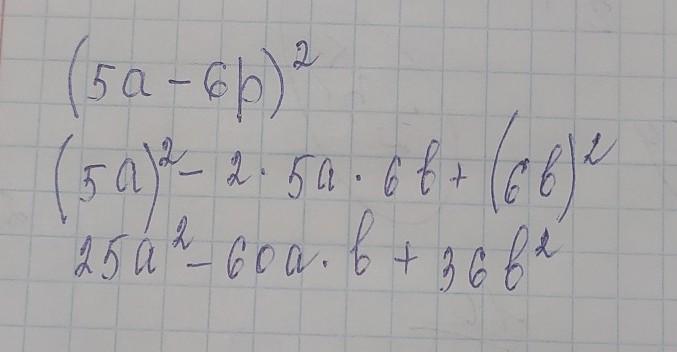 (5a - 6b)²
(5a)² - 2 · 5a · 6b + (6b)²
25a² - 60a · b + 36b²